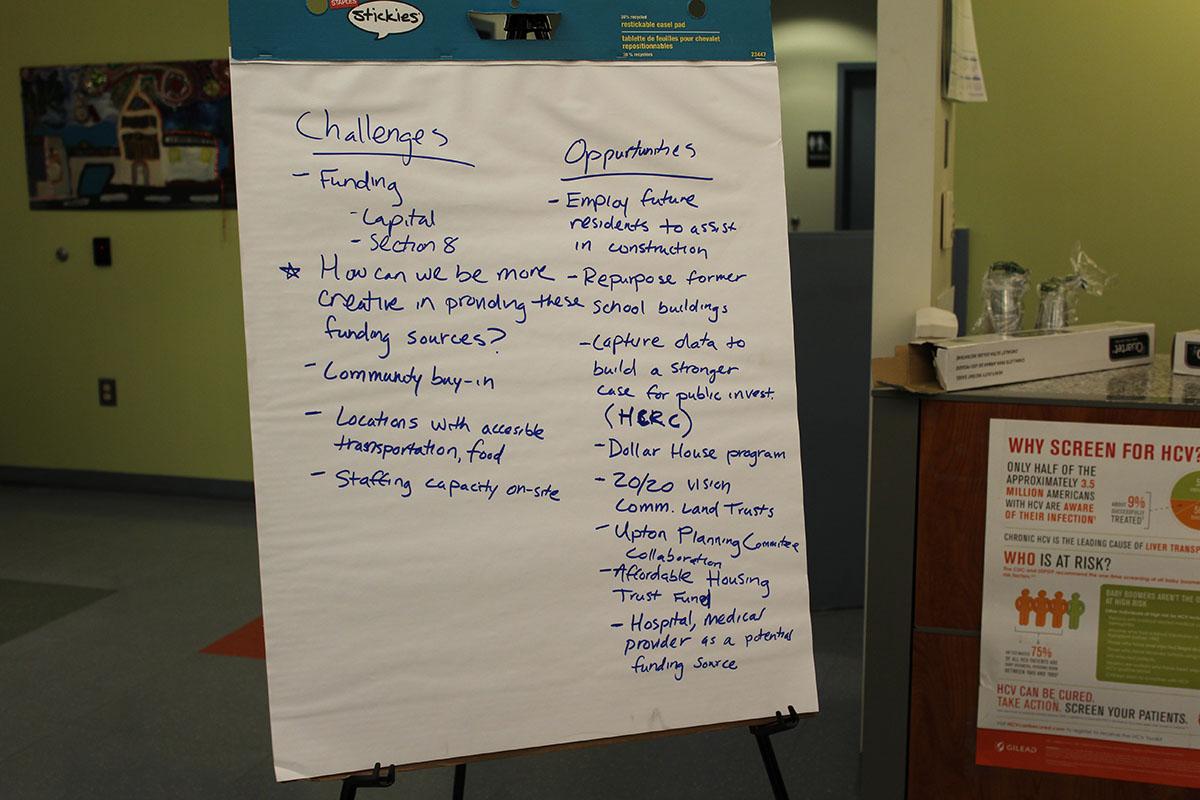 STAPLES
stickies
restickable easel pad
tablette de feuilles pour chevalet
repositionnables
23447
Challenges
- Funding
- Capital
- Section 8
☆ How can we be more
creative in providing these
funding sources?
- Community buy-in
- Locations with accesible
transportation, food
- Staffing capacity on-site
Oppurtunities
- Employ future
residents to assist
in construction
- Repurpose former
school buildings
- Capture data to
build a stronger
case for public invest.
(HCRC)
- Dollar House program
- 20/20 vision
Comm. Land Trusts
- Upton Planning Committee
collaboration
- Affordable Housing
Trust Fund
- Hospital, medical
provider as a potential
funding source
Quartet
WHY SCREEN FOR HCV?
ONLY HALF OF THE
APPROXIMATELY 3.5
MILLION AMERICANS
WITH HCV ARE AWARE
OF THEIR INFECTION
ABOUT 9%
SUCCESSFULLY
TREATED
CHRONIC HCV IS THE LEADING CAUSE OF LIVER TRANSP
WHO IS AT RISK?
BABY BOOMERS AREN'T THE
AT HIGH RISK
75%
OF ALL HCV PATIENTS ARE
HCV CAN BE CURED.
TAKE ACTION. SCREEN YOUR PATIENTS.
GILEAD